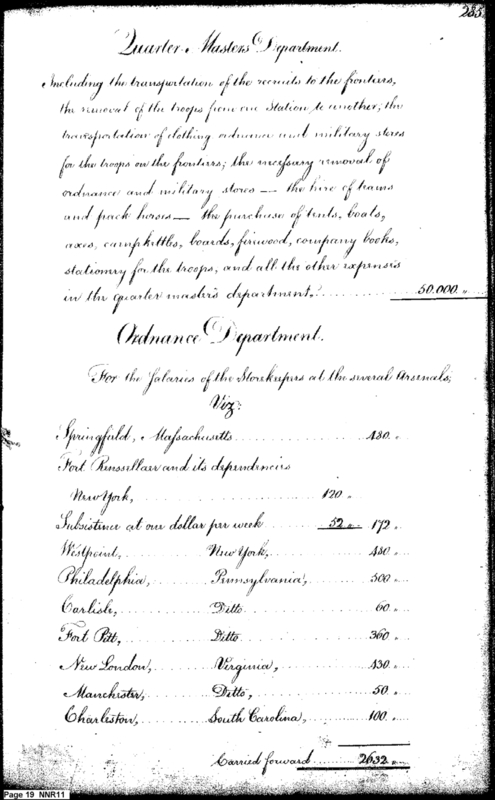 285.
Quarter Masters Department.
Including the transportation of the recruits to the frontiers,
the removal of the troops from one Station to another; the
transportation of clothing ordnance and military stores
for the troops on the frontiers; the necessary removal of
ordnance and military stores — the hire of teams
and pack horses — the purchase of tents, boats,
axes, camp kettles, boards, firewood, company books,
stationery for the troops, and all the other expenses
in the quarter master's department. 50.000 "
Ordnance Department.
For the Salaries of the Storekeepers at the several Arsenals;
Viz:
Springfield, Massachusetts 480 "
Fort Renssellaer and its dependencies
New York, 120 "
Subsistence at one dollar per week 52 " 172 "
Westpoint, New York, 480 "
Philadelphia, Pennsylvania, 500 "
Carlisle, Ditto 60 "
Fort Pitt, Ditto 360 "
New London, Virginia, 430 "
Manchester, Ditto, 50 "
Charleston, South Carolina, 100 "
Carried forward 2632 "
Page 19 NNR11